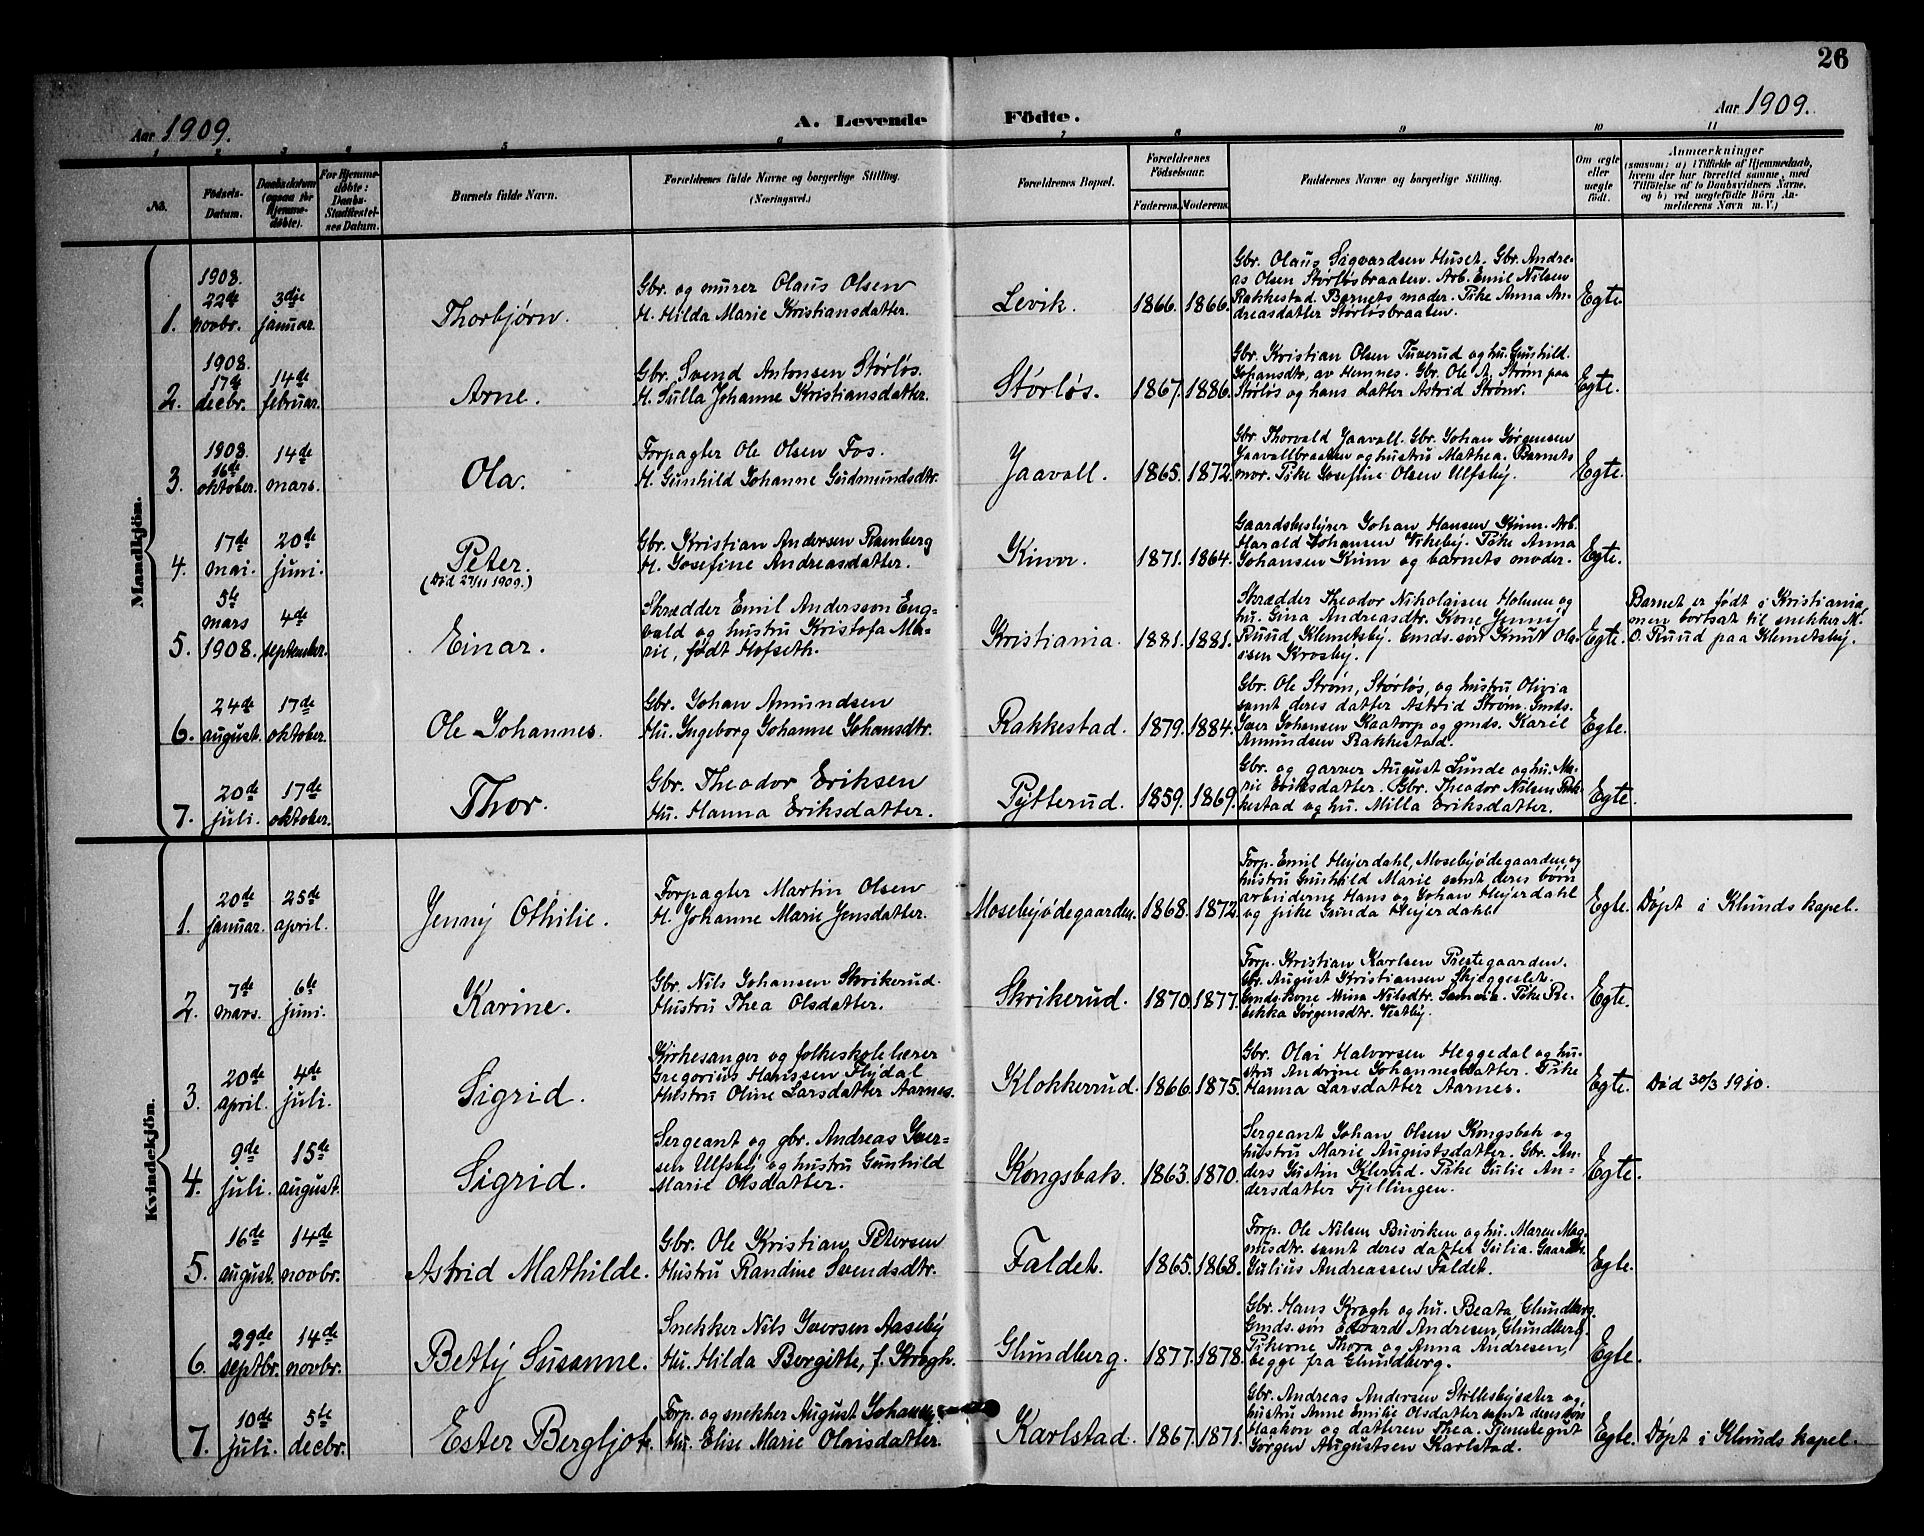 26
Aar 1909.
A. Levende Födte.
Aar 1909.
1 2 3 4 5 6 7 8 9 10 11
No.
Födsels-
Datum.
Daabsdatum
(ogsaa for
Hjemme-
döbte).
For Hjemme-
döbte:
Daabs-
Stadfæstel-
ses Datum.
Barnets fulde Navn.
Forældrenes fulde Navne og borgerlige Stilling.
(Næringsvei.)
Forældrenes Bopæl.
Forældrenes
Födselsaar.
Faderens. Moderens.
Faddernes Navne og borgerlige Stilling.
Om ægte
eller
uægte
født.
Anmærkninger
(saasom: a) i Tilfælde af Hjemmedaab,
hvem der har forrettet samme, med
Tilføielse af to Daabsvidners Navne,
og b) ved uægtefødte Börn An-
melderens Navn m. V.)
Mandkjön.
1.
1908.
22de
novbr.
3dje
januar.
Thorbjørn.
Gbr. og murer Olaus Olsen
H. Hilda Marie Kristiansdatter.
Levik.
1866. 1866.
Gbr. Olaus Sigvardsen Huset. Gbr. Andre-
as Olsen Størløsbraaten. Arb. Emil Nilsen
Rakkestad. Barnets moder. Pike Anna An-
dreasdatter Størløsbraaten.
Egte.
2.
1908.
17de
decbr.
14de
februar.
Arne.
Gbr. Svend Antonsen Størløs.
H. Julla Johanne Kristiansdatter.
Størløs.
1867. 1886.
Gbr. Kristian Olsen Tuverud og hu. Gunhild
Johansdtr, av Hemnes. Gbr. Ole A. Strøm paa
Størløs og hans datter Astrid Strøm.
Egte.
3.
1908.
16de
oktober.
14de
mars.
Ola.
Forpagter Ole Olsen Fos.
H. Gunhild Johanne Gudmundsdtr.
Jaavall.
1865. 1872.
Gbr. Thorvald Jaavall. Gbr. Johan Jørgensen
Jaavallbraaten og hustru Mathea. Barnets
mor. Pike Josefine Olsen Ulfsby.
Egte.
4.
17de
mai.
20de
juni.
Peter.
(Død 27/11 1909.)
Gbr. Kristian Andersen Ramberg
H. Josefine Andreasdatter.
Kinn.
1871. 1864.
Gaardsbestyrer Johan Hansen Kinn. Arb.
Harald Johansen Vikeby. Pike Anna
Johansen Kinn og barnets moder.
Egte.
5.
5te
mars
1908.
4de
september.
Einar.
Skrædder Emil Andersson Eng-
vald og hustru Kristofa Ma-
rie, født Hofseth.
Kristiania.
1881. 1881.
Skrædder Theodor Nikolaisen Holmen og
hu. Gina Andreasdtr. Kone Jenny
Ruud, Klemetsby. Gmds.søn Knut Ola-
isen Krosby.
Egte.
Barnet er født i Kristiania
men bortsat til snekker M.
O. Ruud paa Klemetsby.
6.
24de
august.
17de
oktober.
Ole Johannes.
Gbr. Johan Amundsen
Hu. Ingeborg Johanne Johansdtr.
Rakkestad.
1879. 1884.
Gbr. Ole Strøm, Størløs, og hustru Olivia
samt deres datter Astrid Strøm. Gmds.
Iver Johansen Kaatorp og gmds. Karil
Amundsen Rakkestad.
Egte.
7.
20de
juli.
17de
oktober.
Thor.
Gbr. Theodor Eriksen
Hu. Hanna Eriksdatter.
Pytterud.
1859. 1869.
Gbr. og garver August Lunde og hu. Ma-
rie Eriksdatter. Gbr. Theodor Nilsen Rak-
kestad og hu. Milla Eriksdatter.
Egte.
Kvindekjön.
1.
20de
januar.
25de
april.
Jenny Othilie.
Forpagter Martin Olsen
H. Johanne Marie Jensdatter.
Mosebyødegaarden.
1868. 1872.
Forp. Emil Heyerdahl, Mosebyødegaarden og
hustru Gunhild Marie samt deres børn
arbiderne Hans og Johan Heyerdahl
og pike Gunda Heyerdahl
Egte.
Døpt i Klunds kapel.
2.
7de
mars.
6te
juni.
Karine.
Gbr. Nils Johansen Skrikerud.
Hustru Thea Olsdatter.
Skrikerud.
1870. 1877.
Forp. Kristian Karlsen Prestegaarden.
Gbr. August Kristiansen Skjeggeslet.
Gmds.kone Mina Nilsdtr. Pike Re-
bekka Jørgensdtr. Vestby.
Egte.
3.
20de
april.
4de
juli.
Sigrid.
Kirkesanger og folkeskolelærer
Gregorius Hanssen Flydal
Hustru Oline Larsdatter Aarnes.
Klokkerud.
1866. 1875.
Gbr. Olai Halvorsen Heggedal og hu-
stru Andrine Johannesdatter. Pike
Hanna Larsdatter Aarnes.
Egte.
Død 30/3 1910.
4.
9de
juli.
15de
august.
Sigrid.
Sergeant og gbr. Andreas Iver-
sen Ulfsby og hustru Gunhild
Marie Olsdatter.
Kongsbak.
1863. 1870.
Sergeant Johan Olsen Kongsbak og
hustru Marie Augustsdatter. Gbr. An-
ders Justin Klerud. Pike Julie An-
dersdatter Fjellingen.
Egte.
5.
16de
august.
14de
novbr.
Astrid Mathilde.
Gbr. Ole Kristian Petersen
Hustru Randine Svendsdtr.
Faldet.
1865. 1868.
Forp. Ole Nilsen Buviken og hu. Maren Mag-
nusdtr. samt deres datter Julia.
Julius Andreassen Faldet.
Egte.
6.
29de
septbr.
14de
novbr.
Betty Susanne.
Snekker Nils Iversen Aaseby
Hu. Hilda Bergitte, f. Krogh.
Glundberg.
1877. 1878.
Gbr. Hans Krogh og hu. Beata Glundberg.
Gmds.søn Edvard Andresen, Glundberg.
Pikerne Thora og Anna Andresen,
begge fra Glundberg.
Egte.
7.
10de
juli.
5te
decbr.
Ester Bergljot.
Forp. og snekker August Johansen
Hu. Elise Marie Olaisdatter.
Karlstad.
1867. 1871.
Gbr. Andreas Andersen Stillesbysæter og
hustru Anne Emilie Olsdatter samt deres søn
Haakon og datteren Thea. Tjenestegut
Jørgen Augustsen Karlstad.
Egte.
Døpt i Klunds kapel.